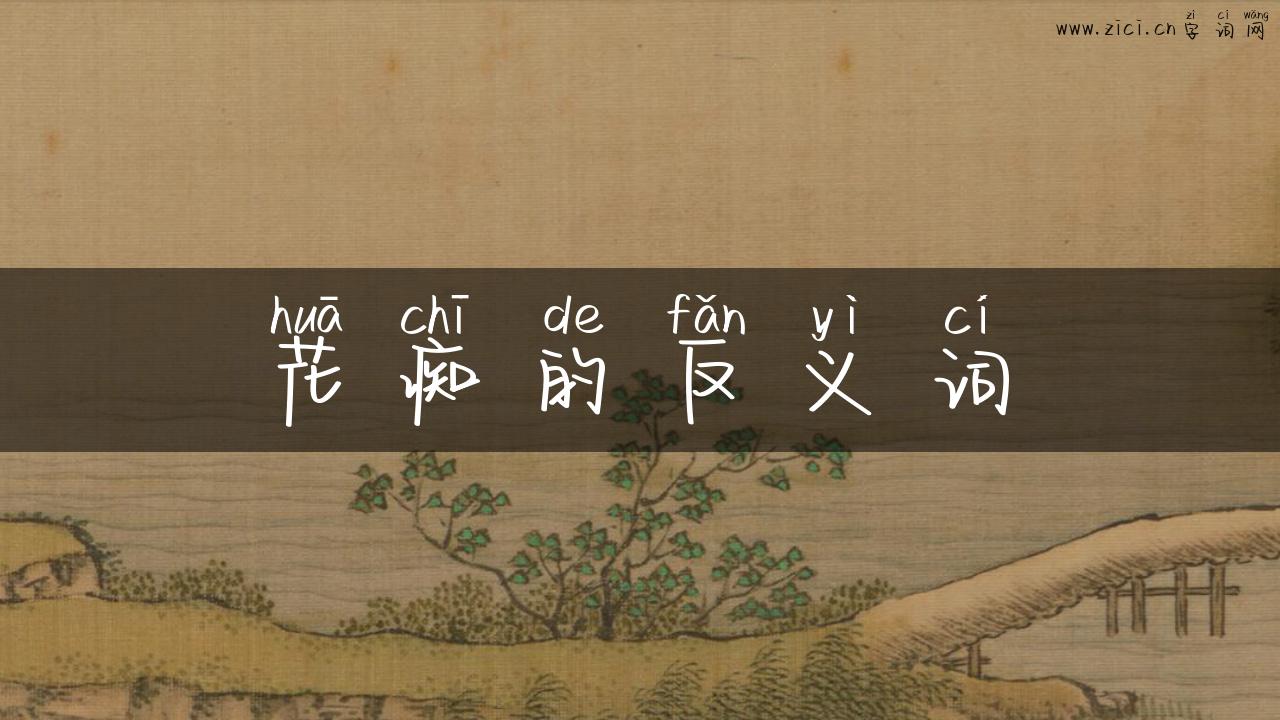 zì cí wǎng
www.zici.cn 字词网
huā chī de fǎn yì cí
花痴的反义词